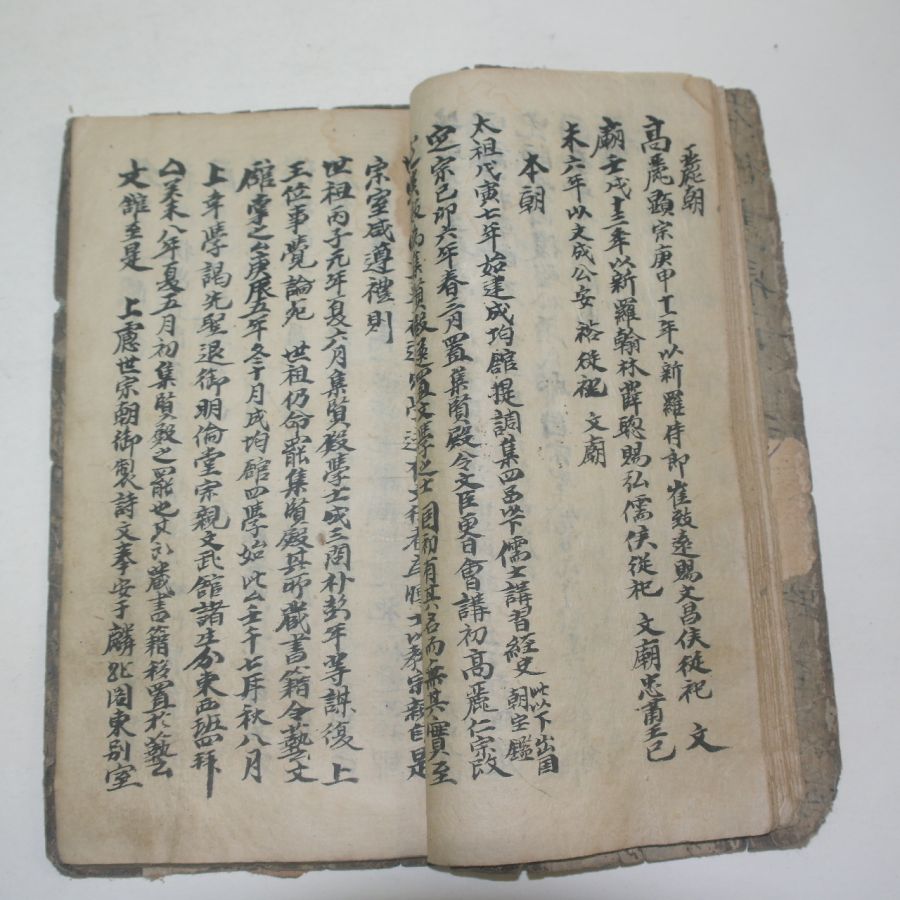 麗朝
高麗顯宗庚申十一年以新羅侍郎崔致遠賜文昌侯從祀 文
廟壬戌十三年以新羅翰林薛聦賜弘儒侯從祀 文廟忠肅王己
未六年以文成公安裕從祀 文廟
本朝
太祖戊寅七年始建成均館提調集四部下儒士講習経史 此以下出国朝宝鑑
定宗己卯六年春三月置集賢殿令文臣更日會講初高麗仁宗改
集賢殿選文學之士 國初有其名而無其實至
自是
宗室咸遵禮則
世祖丙子元年夏六月集賢殿學士成三問朴彭年等謀復 上
王位事覺論死 世祖仍命罷集賢殿其所藏書籍令藝文
館掌之 庚辰五年冬十月成均館四學始此 壬午七年秋八月
上幸學謁先聖退御明倫堂宗親文武館諸生分東西班四拜
癸未八年夏五月初集賢殿之罷也其所藏書籍移置於藝
文館至是 上慮世宗朝御製詩文奉安于麟趾閣東別室